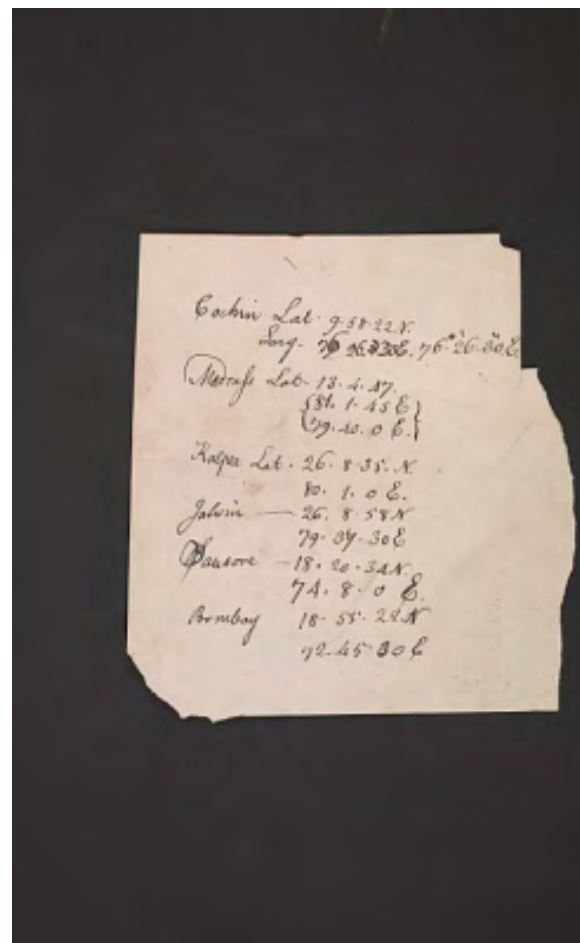 Cochin Lat. 9.58.22 N.
Long. 76 26.30 E. 76°.26'.30" E.
Madrass Lat. 13.4.47.
81. 1. 45 E
79. 40. 0 E.
Kalpee Lat. 26. 8.35. N.
80. 1. 0 E.
Jaloun — 26. 8.58 N
79. 37. 30 E
— 18. 20. 34 N.
74. 8. 0 E.
Bombay 18. 55. 28 N
72. 45. 30 E